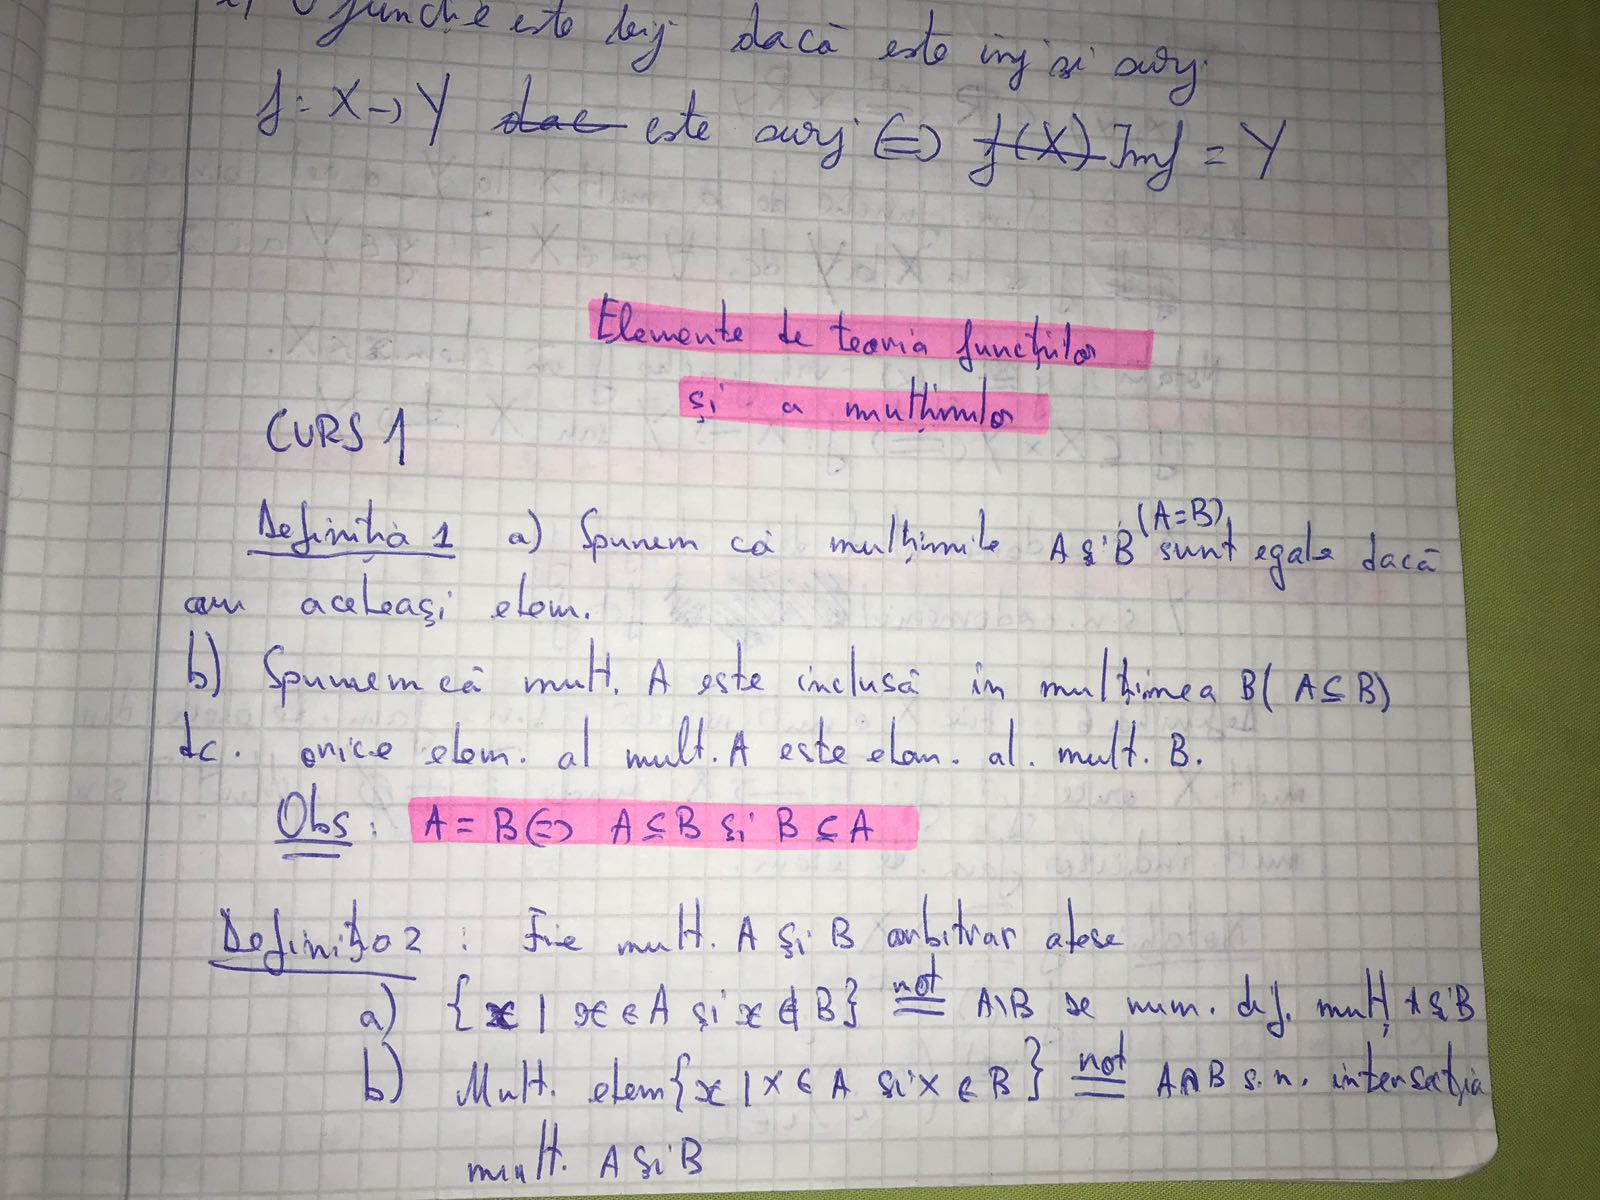 funcție este bij dacă este inj și surj.
f: X → Y dac este surj ⇔ f(X) Imf = Y
Elemente de teoria funcțiilor
și a mulțimilor
CURS 1
Definiția 1 a) Spunem că mulțimile A și B (A=B) sunt egale dacă
au aceleași elem.
b) Spunem că mult. A este inclusă in mulțimea B (A⊆B)
dc. orice elem. al mult. A este elem. al. mult. B.
Obs: A = B ⇔ A⊆B și B⊆A
Definiția 2 : Fie mult. A și B arbitrar alese
a) {x | x∈A și x∉B} not A\B se num. dif. mulț A și B
b) Mult. elem {x | x∈A și x∈B} not A∩B s.n. intersecția
mult. A și B